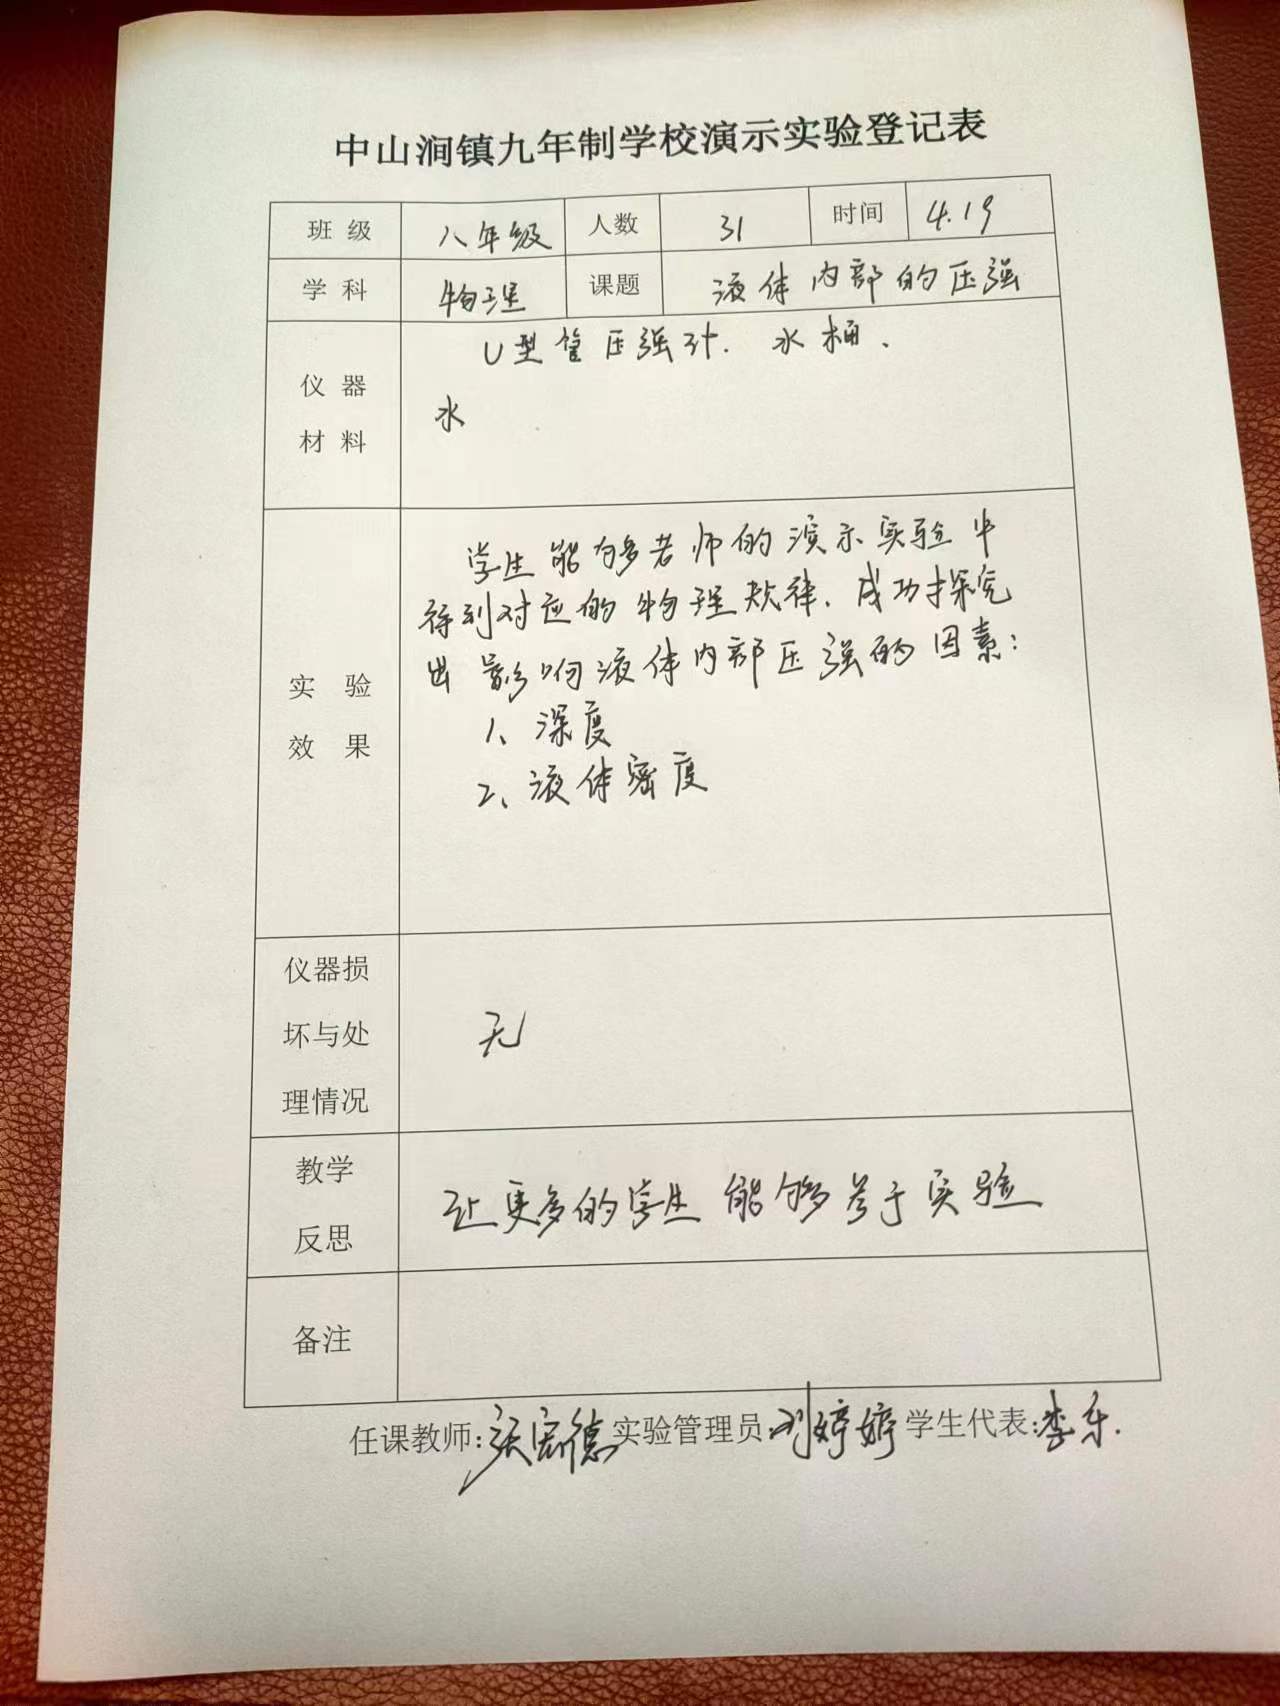 中山涧镇九年制学校演示实验登记表
班 级 八年级 人数 31 时间 4.19
学 科 物理 课题 液体内部的压强
仪 器
材 料
U型管压强计. 水桶.
水
实 验
效 果
学生能够老师的演示实验中
得到对应的物理规律. 成功探究
出影响液体内部压强的因素:
1、深度
2、液体密度
仪器损
坏与处
理情况
无
教学
反思
让更多的学生能够参于实验
备注
任课教师:张宏德 实验管理员:刘婷婷 学生代表:李乐.